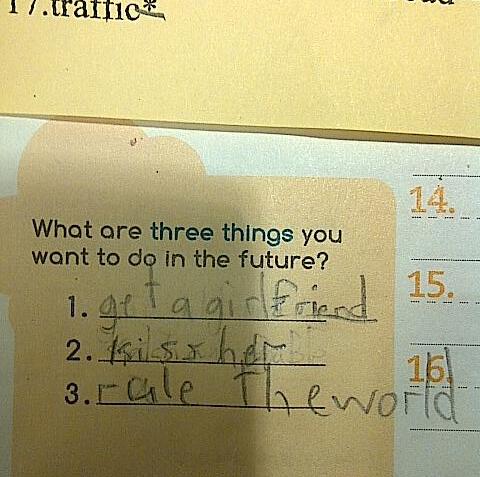 17.traffic*
What are three things you
want to do in the future?
1. get a girlfriend
2. kiss her
3. rule The world
14.
15.
16.